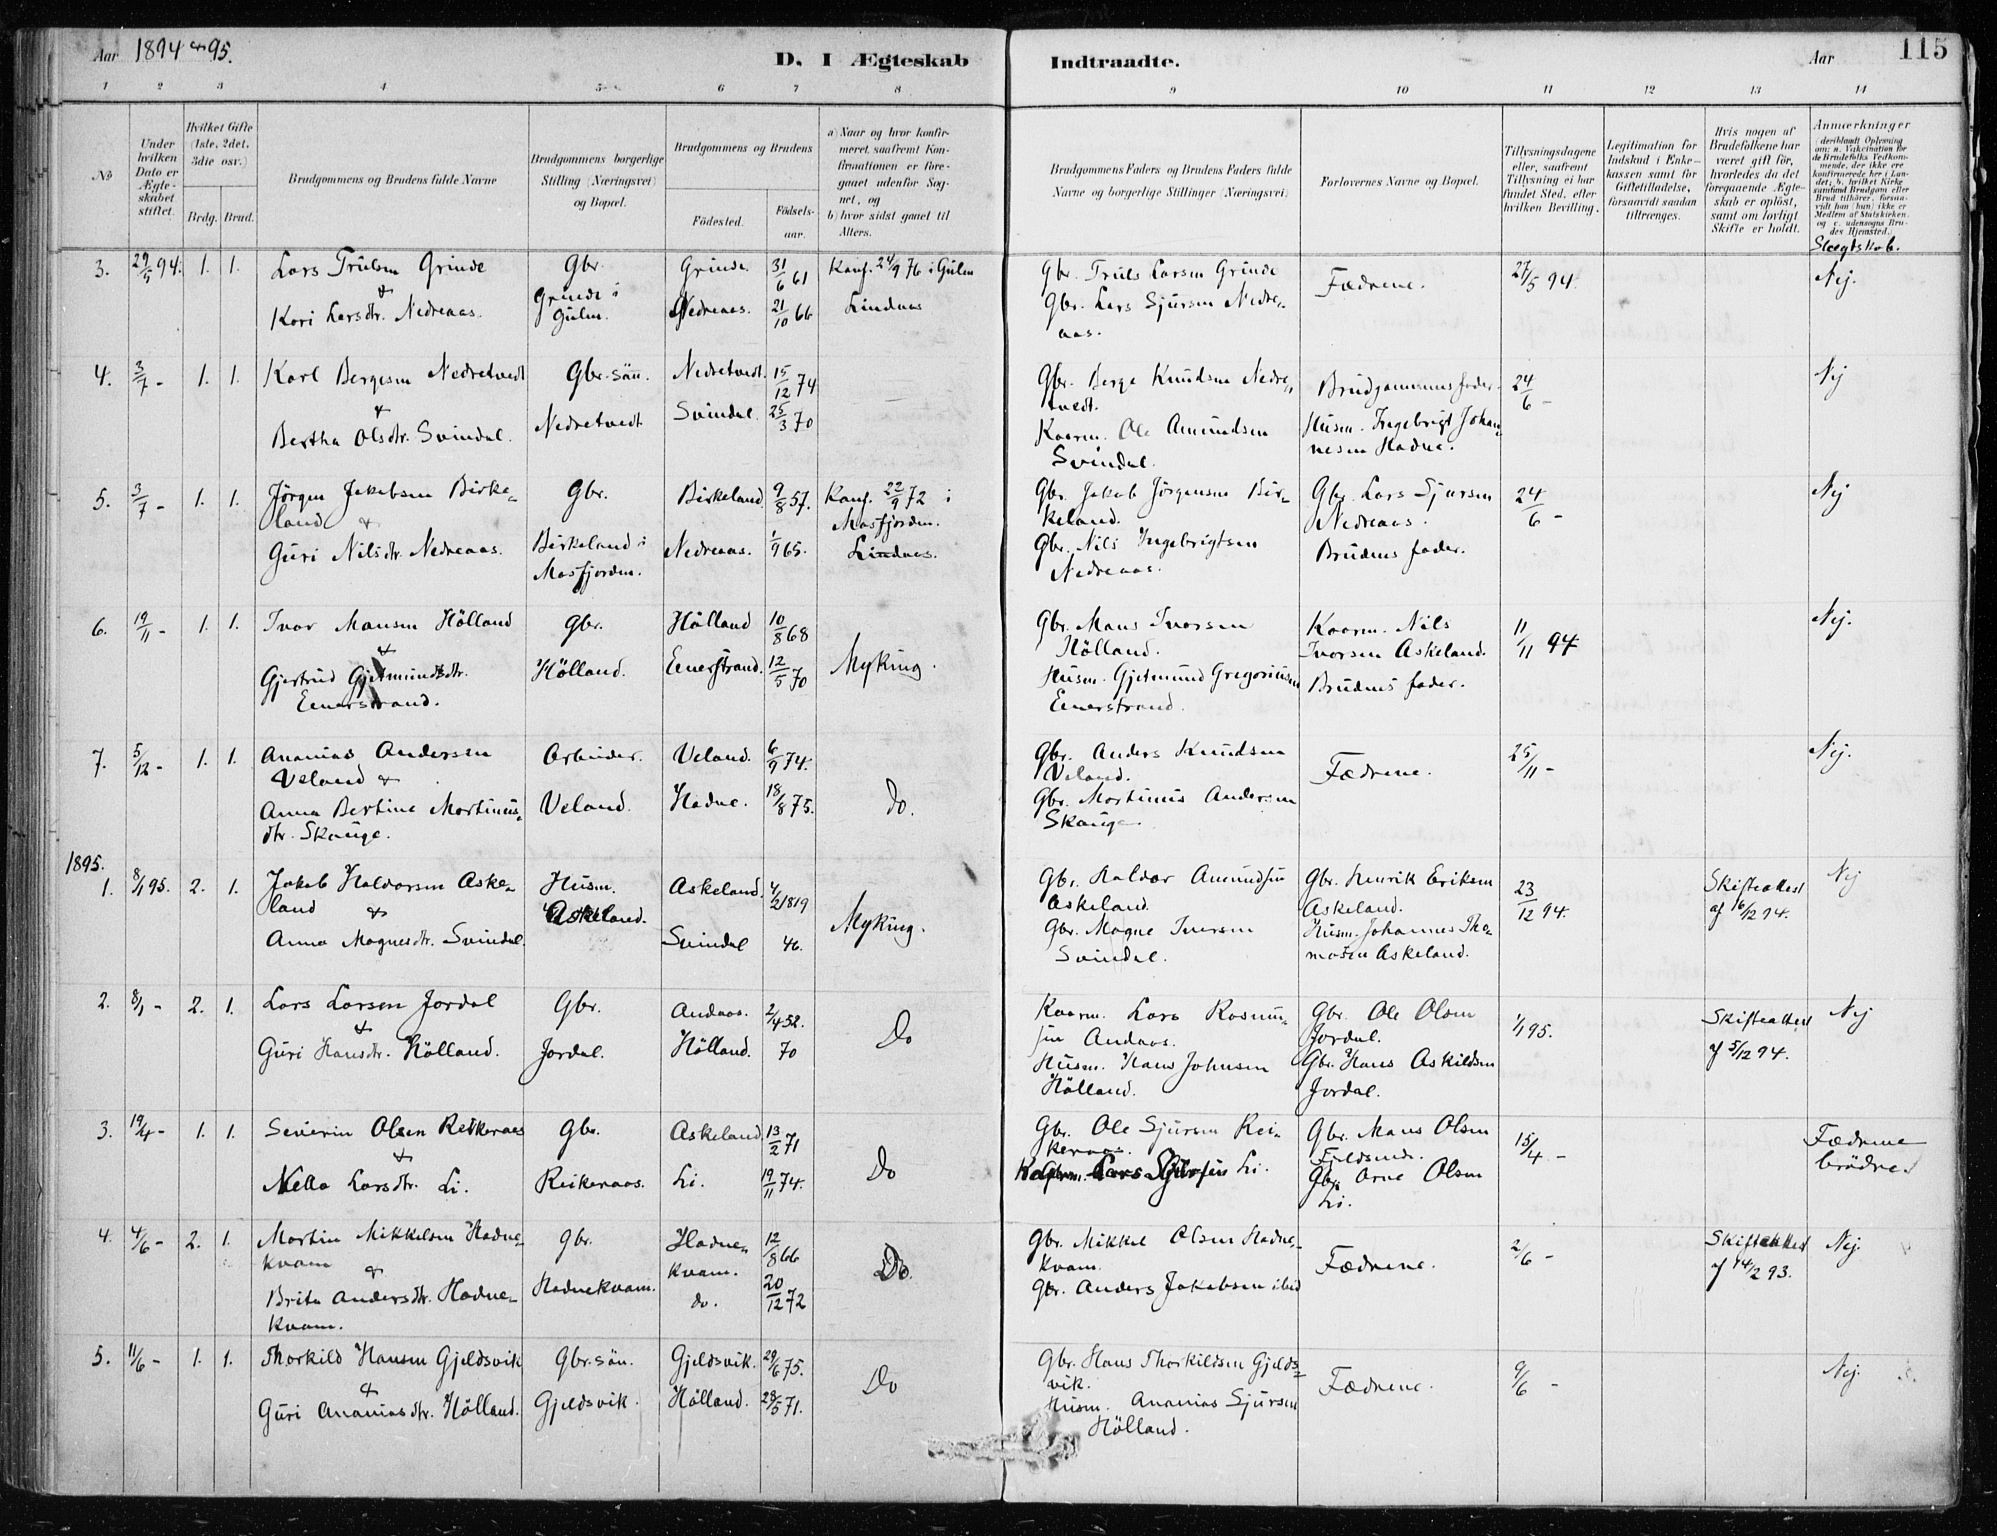 Aar 1894 & 95.
D. I Ægteskab Indtraadte.
Aar 115
1 2 3 4 5 6 7 8 9 10 11 12 13 14
No
Under hvilken Dato er Ægteskabet stiftet.
Hvilket Gifte (1ste, 2det, 3die osv.)
Brdg. Brud.
Brudgommens og Brudens fulde Navne
Brudgommens borgerlige Stilling (Næringsvei) og Bopæl.
Brudgommens og Brudens
Födested. Födsels-aar.
a) Naar og hvor konfirmeret, saafremt Konfirmationen er foregaaet udenfor Sognet, og
b) hvor sidst gaaet til Alters.
Brudgommens Faders og Brudens Faders fulde Navne og borgerlige Stillinger (Næringsvei)
Forlovernes Navne og Bopæl.
Tillysningsdagene eller, saafremt Tillysning ei har fundet Sted, efter hvilken Bevilling.
Legitimation for Indskud i Enkekassen samt for Giftetilladelse, forsaavidt saadan tiltrænges.
Hvis nogen af Brudefolkene har været gift för, hvorledes da det foregaaende Ægteskab er oplöst, samt om lovligt Skifte er holdt.
Anmærkninger
Slægtskab.
3. 29/5 94. 1. 1. Lars Trulsen Grinde & Kari Larsdtr. Nedreaas. Gbr. Grinde i Gulen. Grinde. 31/6 61 Nedreaas. 21/10 66 Konf. 24/9 76 i Gulen Lindaas Gbr. Truls Larsen Grinde Gbr. Lars Sjursen Nedreaas. Fædrene. 27/5 94. Nej.
4. 3/7 - 1. 1. Karl Bergesen Nedretvedt & Bertha Olsdtr. Svindal. Gbr. sön. Nedretvedt Nedretvedt. 15/12 74 Svindal. 25/3 70 Gbr. Berge Knudsen Nedretvedt. Kaarm. Ole Amundsen Svindal. Brudgommens fader. Husm. Ingebrigt Johannesen Hadne. 24/6 - Nej
5. 3/7 - 1. 1. Jörgen Jakobsen Birkeland & Guri Nilsdtr. Nedreaas. Gbr. Birkeland i Masfjorden. Birkeland 9/8 57. Nedreaas. 1/9 65. Konf. 22/9 72 i Masfjorden. Lindaas. Gbr. Jakob Jörgensen Birkeland. Gbr. Nils Ingebrigtsen Nedreaas. Gbr. Lars Sjursen Nedreaas. Brudens fader. 24/6 - Nej
6. 19/11 - 1. 1. Ivar Monsen Hölland & Gjertrud Gjetmundsdtr. Eenerstrand. Gbr. Hölland. Hölland 10/8 68 Eenerstrand. 12/5 70 Myking. Gbr. Mons Ivarsen Hölland. Husm. Gjetmund Gregoriusen Eenerstrand. Kaarm. Nils Ivorsen Askeland. Brudens fader. 11/11 94 Nej.
7. 5/12 - 1. 1. Ananias Andersen Veland & Anna Bertine Martinusdtr. Skauge. Arbeider. Veland. Veland. 6/9 74. Hadne. 18/8 75. Do. Gbr. Anders Knudsen Veland. Gbr. Martinus Andersen Skauge. Fædrene. 25/11 - Nej.
1895.
1. 8/1 95. 2. 1. Jakob Haldorsen Askeland & Anna Magnesdtr. Svindal. Husm. Askeland. Askeland. 4/2 1819 Svindal 46. Myking. Gbr. Haldor Amundsen Askeland. Gbr. Magne Iversen Svindal. Gbr. Henrik Eriksen Askeland. Husm. Johannes Thomasen Askeland. 23/12 94. Skifteattest af 16/12 94. Nej
2. 8/1 - 2. 1. Lars Larsen Jordal & Guri Hansdtr. Hölland. Gbr. Jordal. Andaas. 2/4 52. Hölland. 70 Do Kaarm. Lars Rasmussen Andaas. Husm. Hans Johnsen Hölland. Gbr. Ole Olsen Jordal. Gbr. Hans Askildsen Jordal. 1/1 95. Skifteattest af 5/12 94. Nej
3. 19/4 - 1. 1. Severin Olsen Reikeraas & Nella Larsdtr. Li. Gbr. Reikeraas. Askeland 13/2 71 Li. 19/11 74. Do Gbr. Ole Sjursen Reikeraas. Kaarm. Lars Li. Gbr. Mons Olsen Gbr. Arne Olsen Li. 15/4 - Fædrene brödre.
4. 4/6 - 2. 1. Martin Mikkelsen Hadnekvam & Brita Andersdtr. Hadnekvam. Gbr. Hadnekvam. Hadnekvam. 12/8 66 do. 20/12 72 Do. Gbr. Mikkel Olsen Hadnekvam. Gbr. Anders Jakobsen ibid Fædrene. 2/6 - Skifteattest af 14/2 93. Nej.
5. 11/6 - 1. 1. Thorkild Hansen Gjeldsvik & Guri Ananiasdtr. Hölland. Gbr. sön. Gjeldsvik. Gjeldsvik. 29/6 75. Hölland. 28/5 71. Do Gbr. Hans Thorkildsen Gjeldsvik. Husm. Ananias Sjursen Hölland. Fædrene. 9/6 - Nej.